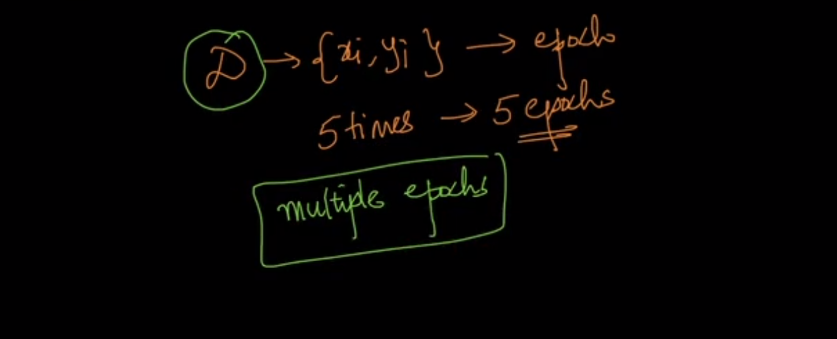 D → {xi, yi} → epoch
5 times → 5 epochs
multiple epochs